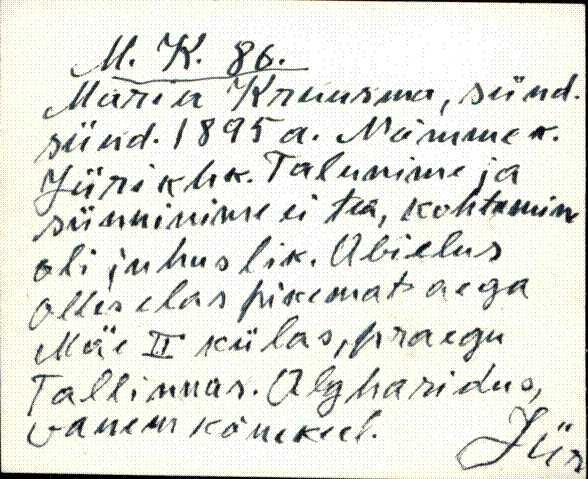 M. K. 86.
Maria Kruusma, sünd.
sünd. 1895 a. Nõmme k.
Jüri khk. Talunime ja
sünninime ei tea, kohtamine
oli juhuslik. Abielus
olles elas pikemat aega
Mäe II külas, praegu
Tallinnas. Algharidus,
vanem kõnekeel.
Jür